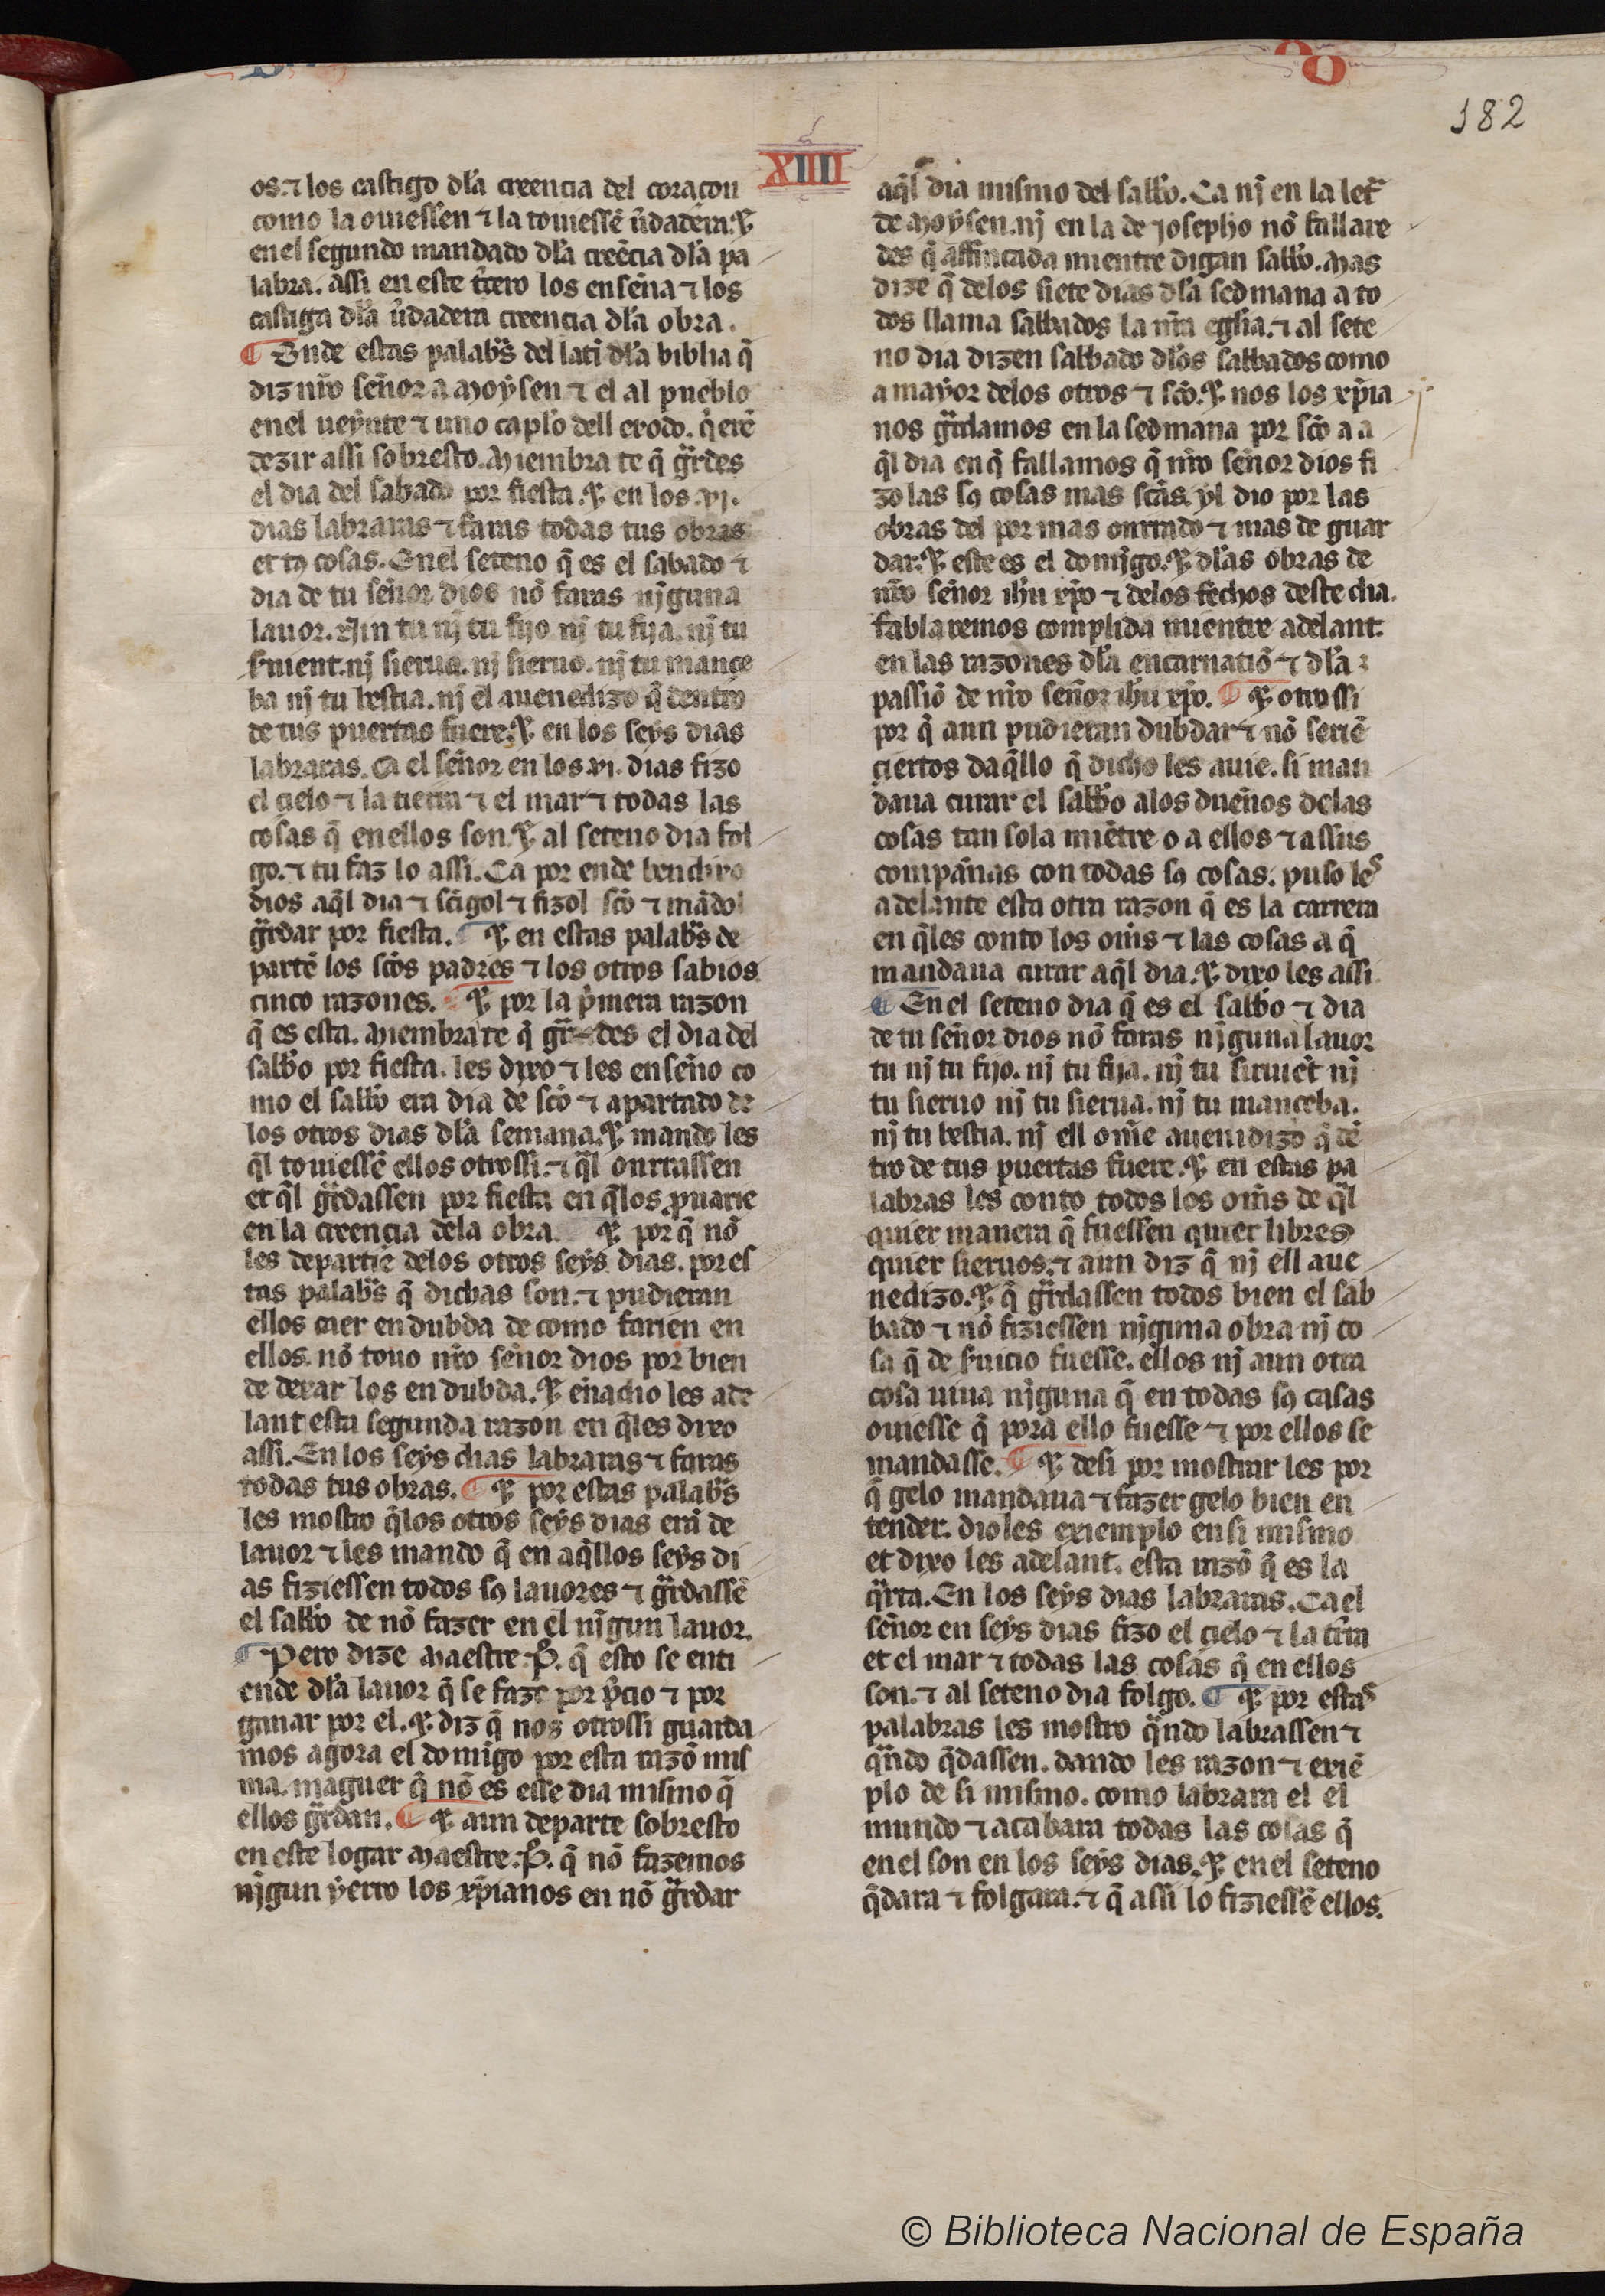 182
XIIII
os. ⁊ los castigo dl̃a creencia del coraçon
como la ouiessen ⁊ la touiessẽ ũdadera. ⁊
en el segundo mandado dl̃a creẽcia dl̃a pa
labra. assi en este t̃cero los enseña ⁊ los
castiga dl̃a ũdadera creencia dl̃a obra.
¶ Onde estas palab̃s del latĩ dl̃a biblia q̃
diz nr̃o señor a moẏsen ⁊ el al pueblo
en el ueẏnte ⁊ uno capl̃o dell exodo. q̃erẽ
dezir assi sobresto. Miembra te q̃ gr̃des
el dia del sabado por fiesta. ⁊ en los .vj.
dias labraras ⁊ faras todas tus obras
et tꝯ cosas. En el seteno q̃ es el sabado ⁊
dia de tu señor dios nõ faras nj̃guna
lauor. Nin tu nj tu fijo nj tu fija. nj tu
siruient. nj sierua. nj sieruo. nj tu mançe
ba nj tu bestia. nj el auenedizo q̃ dentro
de tus puertas fuere. ⁊ en los seẏs dias
labraras. Ca el señor en los .vi. dias fizo
el çielo ⁊ la tierra ⁊ el mar ⁊ todas las
cosas q̃ en ellos son. ⁊ al seteno dia fol
go. ⁊ tu faz lo assi. Ca por ende bendixo
dios aq̃l dia ⁊ sc̃igol ⁊ fizol sc̃o ⁊ mãdol
gr̃dar por fiesta. ¶ ⁊ en estas palab̃s de
partẽ los sc̃os padres ⁊ los otros sabios
cinco razones. ¶ ⁊ por la p̃mera razon
q̃ es esta. Miembra te q̃ gr̃des el dia del
sabb̃o por fiesta. les dixo ⁊ les enseño co
mo el sabb̃o era dia de sc̃o ⁊ apartado de
los otros dias dl̃a semana. ⁊ mando les
q̃l touiessẽ ellos otrossi. ⁊ q̃l onrrassen
et q̃l gr̃dassen por fiesta en q̃los ꝓuarie
en la creencia dela obra. ⁊ por q̃ nõ
les departie delos otros seẏs dias. por es
tas palab̃s q̃ dichas son. ⁊ pudieran
ellos caer en dubda de como farien en
ellos. nõ touo nr̃o señor dios por bien
de dexar los en dubda. ⁊ eñadio les ade
lant esta segunda razon en q̃les dixo
assi. En los seẏs dias labraras ⁊ faras
todas tus obras. ¶ ⁊ por estas palab̃s
les mostro q̃los otros seẏs dias erã de
lauor ⁊ les mando q̃ en aq̃llos seẏs di
as fiziessen todos sꝯ lauores ⁊ gr̃dassẽ
el sabb̃o de nõ fazer en el nj̃gun lauor.
¶ Pero dize maestre .P̃. q̃ esto se enti
ende dl̃a lauor q̃ se faze por p̃cio ⁊ por
ganar por el. ⁊ diz q̃ nos otrossi guarda
mos agora el domĩgo por esta razõ mis
ma. maguer q̃ nõ es esse dia mismo q̃
ellos gr̃dan. ¶ ⁊ aun departe sobresto
en este logar maestre .P̃. q̃ nõ fazemos
nj̃gun ẏerro los xp̃ianos en nõ gr̃dar
aq̃l dia mismo del sabb̃o. Ca nj en la let̃
de moẏsen. nj en la de josepho nõ fallare
des q̃ affincada mientre digan sabb̃o. mas
dize q̃ delos siete dias dl̃a sedmana a to
dos llama sabbados la nr̃a egl̃ia. ⁊ al sete
no dia dizen sabbado dl̃os sabbados como
a maẏor delos otros ⁊ sc̃o. ⁊ nos los xp̃ia
nos gr̃damos en la sedmana por sc̃o a a
q̃l dia en q̃ fallamos q̃ nr̃o señor dios fi
zo las sꝯ cosas mas sc̃as. ẏl dio por las
obras del por mas onrrado ⁊ mas de guar
dar. ⁊ este es el domĩgo. ⁊ dl̃as obras de
nr̃o señor ih̃u xp̃o ⁊ delos fechos deste dia.
fablaremos complida mientre adelant.
en las razones dl̃a encarnatiõ ⁊ dl̃a
passiõ de nr̃o señor ih̃u xp̃o. ¶ ⁊ otrossi
por q̃ aun pudieran dubdar ⁊ nõ seriẽ
çiertos daq̃llo q̃ dicho les auie. si man
daua curar el sabb̃o alos dueños delas
cosas tan sola miẽtre o a ellos ⁊ assus
compañas con todas sꝯ cosas. puso les
adelante esta otra razon q̃ es la carrera
en q̃les conto los om̃s ⁊ las cosas a q̃
mandaua curar aq̃l dia. ⁊ dixo les assi
¶ En el seteno dia q̃ es el sabb̃o ⁊ dia
de tu señor dios nõ faras nj̃guna lauor
tu nj tu fijo. nj tu fija. nj tu siruiẽt nj
tu sieruo nj tu sierua. nj tu manceba.
nj tu bestia. nj ell om̃e auenidizo q̃ dẽ
tro de tus puertas fuere. ⁊ en estas pa
labras les conto todos los om̃s de q̃l
quier manera q̃ fuessen quier libres
quier sieruos. ⁊ aun diz q̃ nj ell aue
nedizo. ⁊ q̃ gr̃dassen todos bien el sab
bado ⁊ nõ fiziessen nj̃guna obra nj co
sa q̃ de s̃uicio fuesse. ellos nj aun otra
cosa uiua nj̃guna q̃ en todas sꝯ casas
ouiesse q̃ pora ello fuesse ⁊ por ellos se
mandasse. ¶ ⁊ desi por mostrar les por
q̃ gelo mandaua ⁊ fazer gelo bien en
tender. dioles exiemplo en si mismo
et dixo les adelant. esta razõ q̃ es la
q̃rta. En los seẏs dias labraras. Ca el
señor en seẏs dias fizo el çielo ⁊ la tr̃ra
et el mar ⁊ todas las cosas q̃ en ellos
son. ⁊ al seteno dia folgo. ¶ ⁊ por estas
palabras les mostro q̃ndo labrassen ⁊
q̃ndo q̃dassen. dando les razon ⁊ exiẽ
plo de si mismo. como labrara el el
mundo ⁊ acabara todas las cosas q̃
en el son en los seẏs dias. ⁊ en el seteno
q̃dara ⁊ folgara. ⁊ q̃ assi lo fiziessẽ ellos.
© Biblioteca Nacional de España